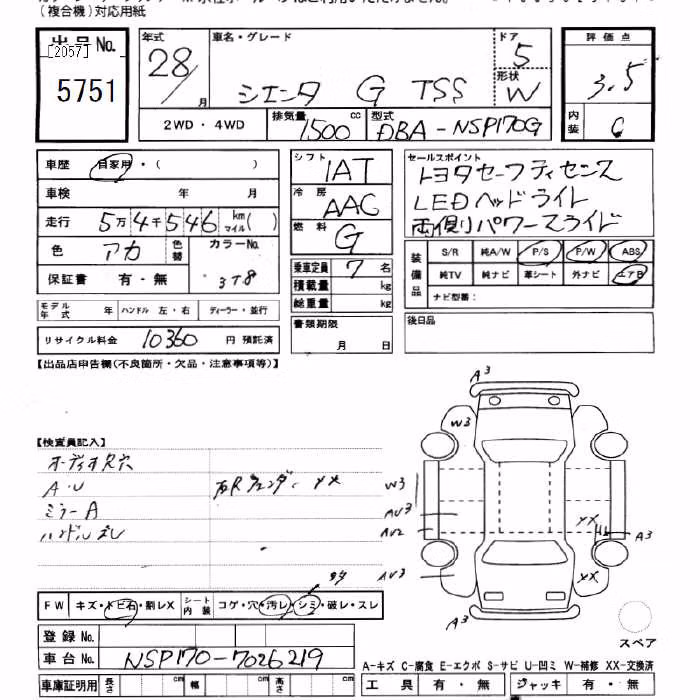 (複合機)対応用紙
出品No.
[2057]
5751
年式 28 / 月
車名・グレード
シエンタ G TSS
ドア 5
形状 W
評価点 3.5
内装 C
2WD・4WD
排気量 1500 cc
型式 DBA-NSP170G
車歴 自家用・( )
車検 年 月
走行 5万4千546 km マイル( )
色 アカ 色替 カラーNo. 3T8
保証書 有・無
モデル年式 年 ハンドル 左・右 ディーラー・並行
リサイクル料金 10360 円 預託済
シフト IAT
冷房 AAC
燃料 G
乗車定員 7 名
積載量 kg
総重量 kg
書類期限 月 日
セールスポイント
トヨタセーフティセンス
LEDヘッドライト
両側パワースライド
装備品 S/R 純A/W P/S P/W ABS
純TV 純ナビ 革シート 外ナビ エアB
ナビ型番:
後日品
【出品店申告欄(不良箇所・欠品・注意事項等)】
【検査員記入】
オーディオ穴
A・U
右Rフェンダー XX
ミラーA
ハンドルズレ
A3
W3
W3
AU3
AU2
AU3
XX
A3
XX
A3
スペア
FW キズ・トビ石・割レX シート内装 コゲ・穴・汚レ・シミ・破レ・スレ
登録No.
車台No. NSP170-7026219
車庫証明用 長さ cm 幅 cm 高さ cm
A-キズ C-腐食 E-エクボ S-サビ U-凹ミ W-補修 XX-交換済
工具 有・無 ジャッキ 有・無